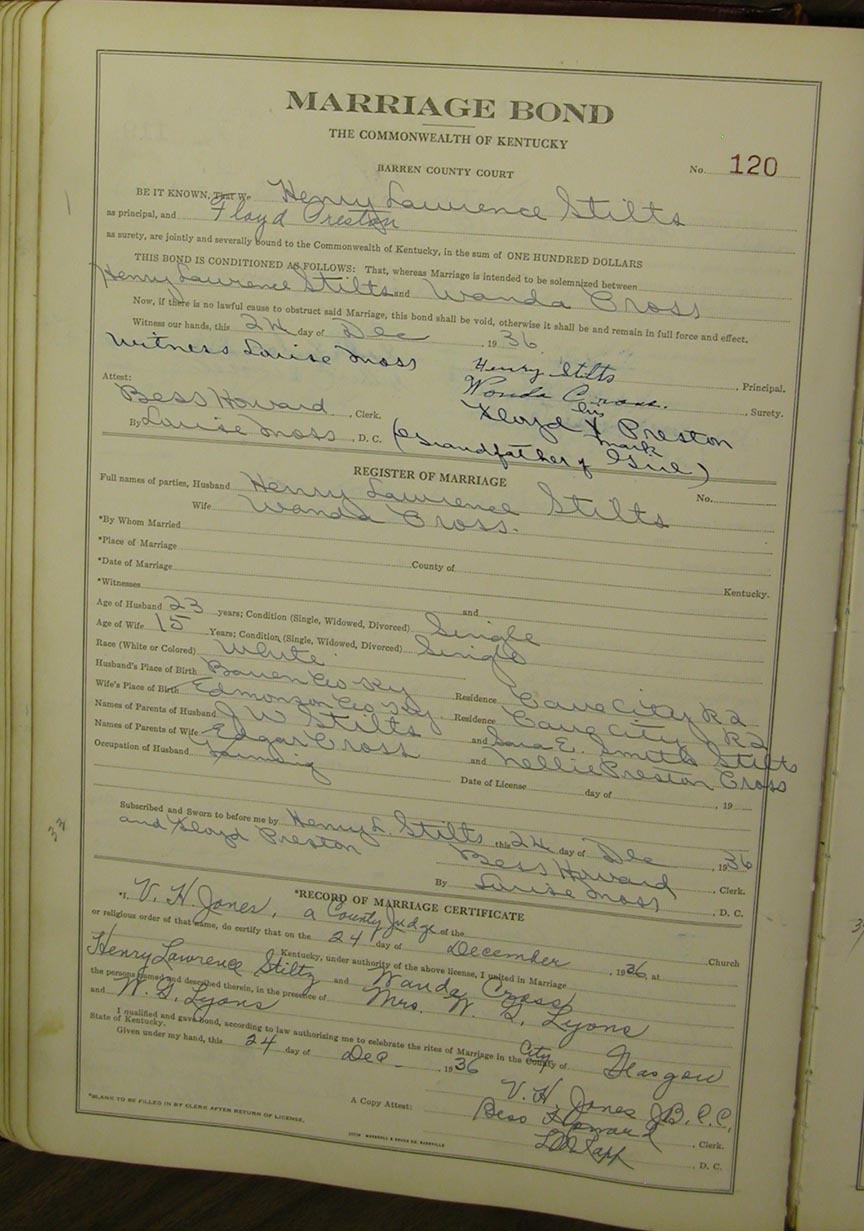 MARRIAGE BOND
THE COMMONWEALTH OF KENTUCKY
BARREN COUNTY COURT
No. 120
BE IT KNOWN, That We Henry Lawrence Stilts
as principal, and Floyd Preston
as surety, are jointly and severally bound to the Commonwealth of Kentucky, in the sum of ONE HUNDRED DOLLARS
THIS BOND IS CONDITIONED AS FOLLOWS: That, whereas Marriage is intended to be solemnized between
Henry Lawrence Stilts and Wanda Cross
Now, if there is no lawful cause to obstruct said Marriage, this bond shall be void, otherwise it shall be and remain in full force and effect.
Witness our hands, this 24 day of Dec, 1936
Witness Louise Moss Henry Stilts, Principal.
Wonda Cross, Surety.
Attest: his
Bess Howard, Clerk. Floyd X Preston
mark
By Louise Moss, D. C. (Grandfather of Girl)
REGISTER OF MARRIAGE
No.
Full names of parties, Husband Henry Lawrence Stilts
Wife Wanda Cross.
*By Whom Married
*Place of Marriage
*Date of Marriage County of Kentucky.
*Witnesses and
Age of Husband 23 years; Condition (Single, Widowed, Divorced) Single
Age of Wife 15 Years; Condition (Single, Widowed, Divorced) Single
Race (White or Colored) White
Husband's Place of Birth Barren Co Ky Residence Cave City R2
Wife's Place of Birth Edmonson Co Ky Residence Cave City R2
Names of Parents of Husband J W Stilts and Sara E. Smith Stilts
Names of Parents of Wife Edgar Cross and Nellie Preston Cross
Occupation of Husband Farming Date of License day of, 19
Subscribed and Sworn to before me by Henry L. Stilts this 24 day of Dec, 1936
and Floyd Preston
Bess Howard, Clerk.
By Louise Moss, D. C.
*RECORD OF MARRIAGE CERTIFICATE
*I, V. H. Jones, a County Judge of the Church
or religious order of that name, do certify that on the 24 day of December, 1936, at
Kentucky, under authority of the above license, I united in Marriage
Henry Lawrence Stiltz and Wanda Cross
the persons named and described therein, in the presence of Mrs. W. G. Lyons
and W. G. Lyons
I qualified and gave bond, according to law authorizing me to celebrate the rites of Marriage in the County City of Glasgow
State of Kentucky.
Given under my hand, this 24 day of Dec., 1936
V. H. Jones J.B.C.C.
A Copy Attest: Bess Howard, Clerk.
D. C.
*BLANK TO BE FILLED IN BY CLERK AFTER RETURN OF LICENSE.